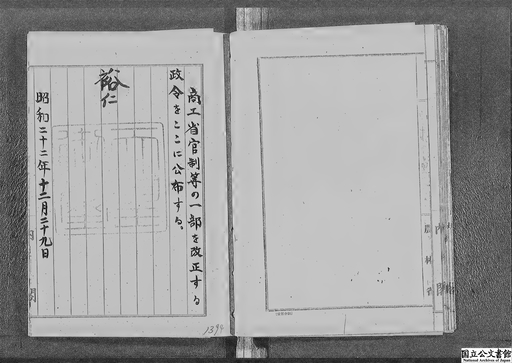 商工省官制等の一部を改正する
政令をここに公布する。
裕仁
昭和二十二年十二月二十九日
1394
国立公文書館
National Archives of Japan